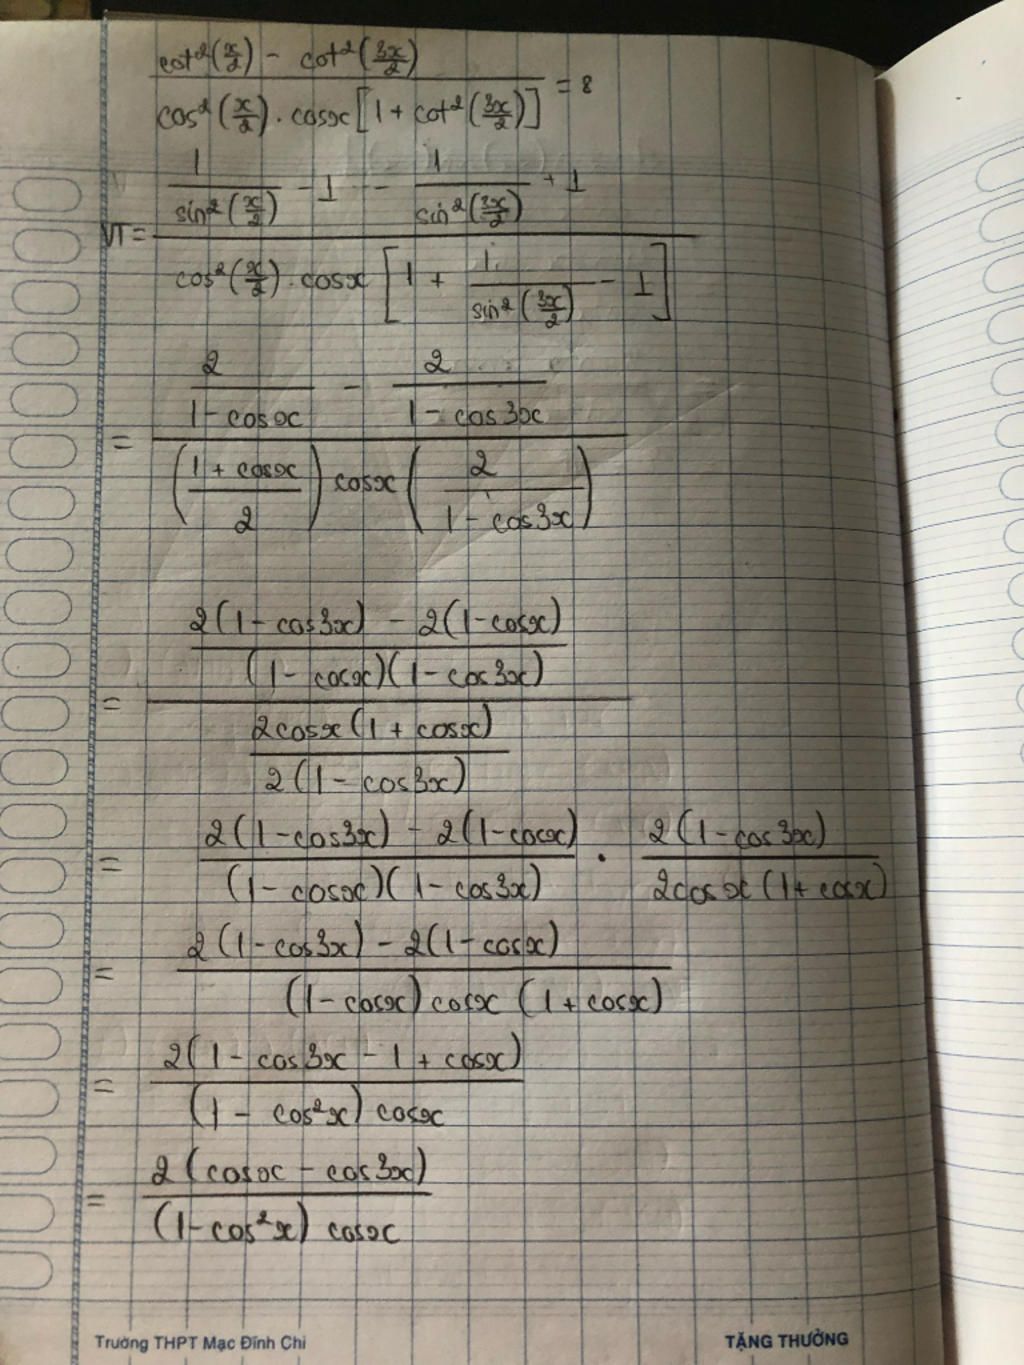 cot²(x/2) - cot²(3x/2) / cos²(x/2) . cosx [1 + cot²(3x/2)] = 8
VT = 1/sin²(x/2) - 1 - 1/sin²(3x/2) + 1 / cos²(x/2) . cosx [1 + 1/sin²(3x/2) - 1]
= 2/1 - cosx - 2/1 - cos3x / (1 + cosx/2) cosx (2/1 - cos3x)
= 2(1 - cos3x) - 2(1 - cosx)/(1 - cosx)(1 - cos3x) / 2cosx(1 + cosx)/2(1 - cos3x)
= 2(1 - cos3x) - 2(1 - cosx)/(1 - cosx)(1 - cos3x) . 2(1 - cos3x)/2cosx(1 + cosx)
= 2(1 - cos3x) - 2(1 - cosx)/(1 - cosx) cosx (1 + cosx)
= 2(1 - cos3x - 1 + cosx)/(1 - cos²x) cosx
= 2(cosx - cos3x)/(1 - cos²x) cosx
Trường THPT Mạc Đĩnh Chi TẶNG THƯỞNG